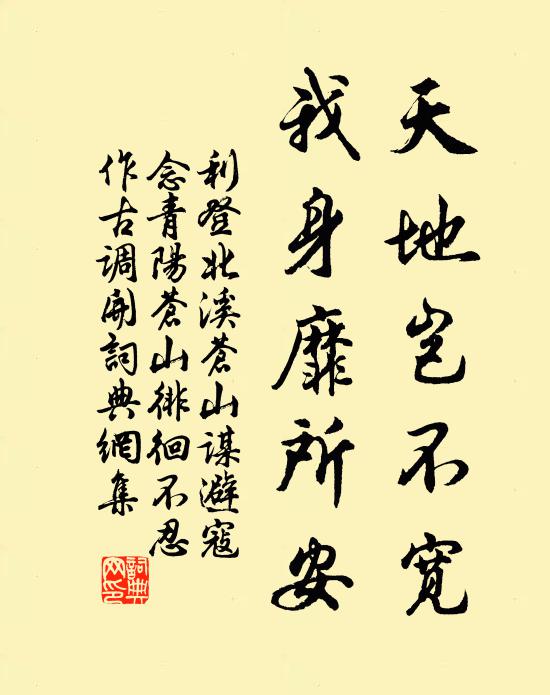 天地岂不宽
我身靡所安
利登北溪苍山谋避寇
念青阳苍山徘徊不忍
作古调開詞典網集
詞典网印